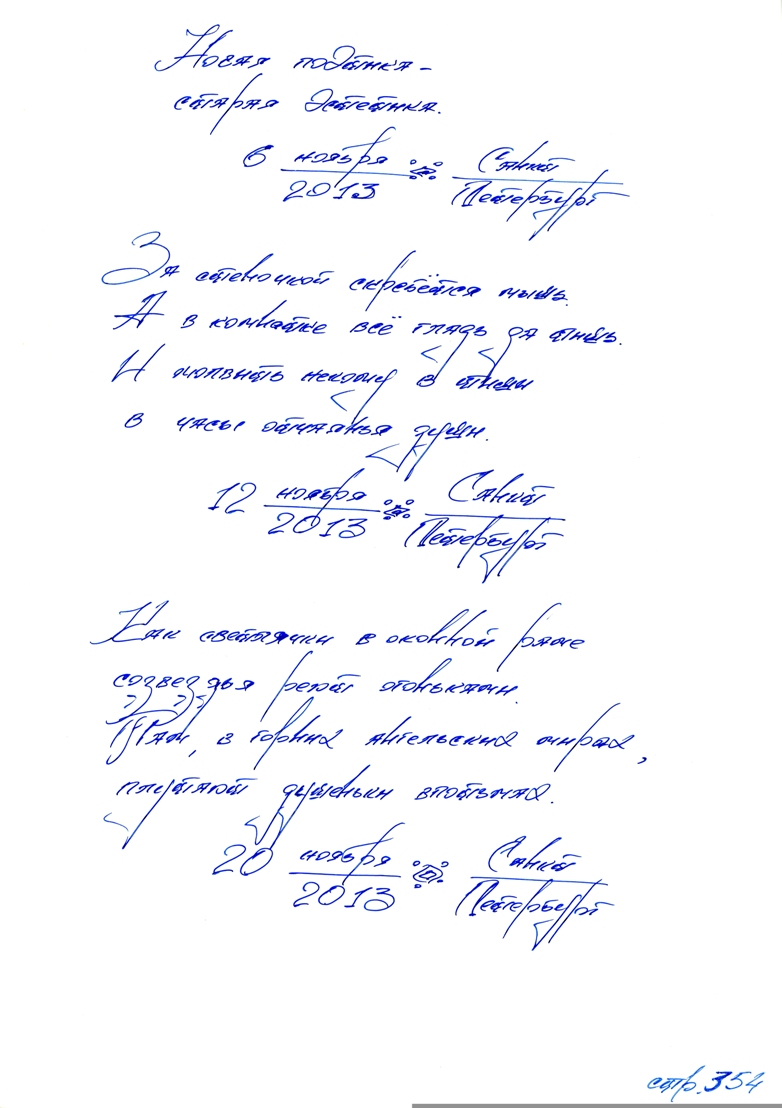 Новая поэтика –
старая эстетика.
6 ноября
2013
Санкт
Петербург
За стеночкой скребётся мышь.
А в комнатке всё гладь да тишь.
И молвить некому в тиши
в часы отчаянья души.
12 ноября
2013
Санкт
Петербург
Как светлячки в оконной раме
созвездья реют огоньками.
Там, в горних ангельских мирах,
плутают душеньки впотьмах.
20 ноября
2013
Санкт
Петербург
стр. 354